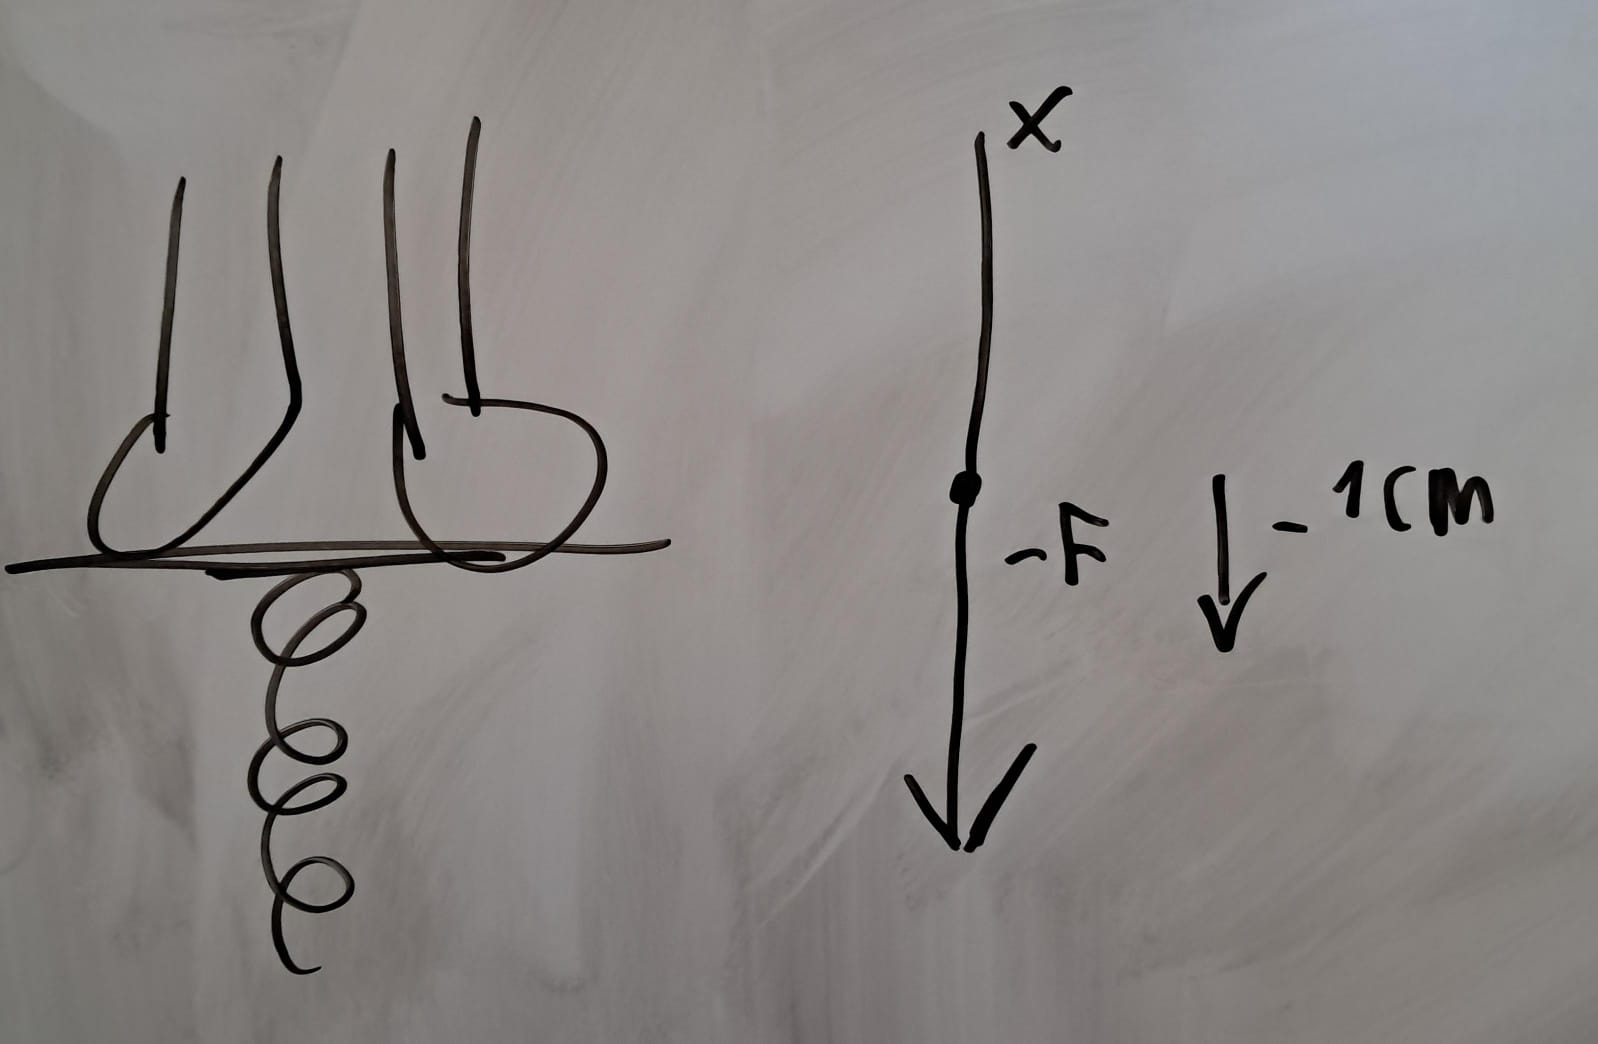 x
-F
- 1cm